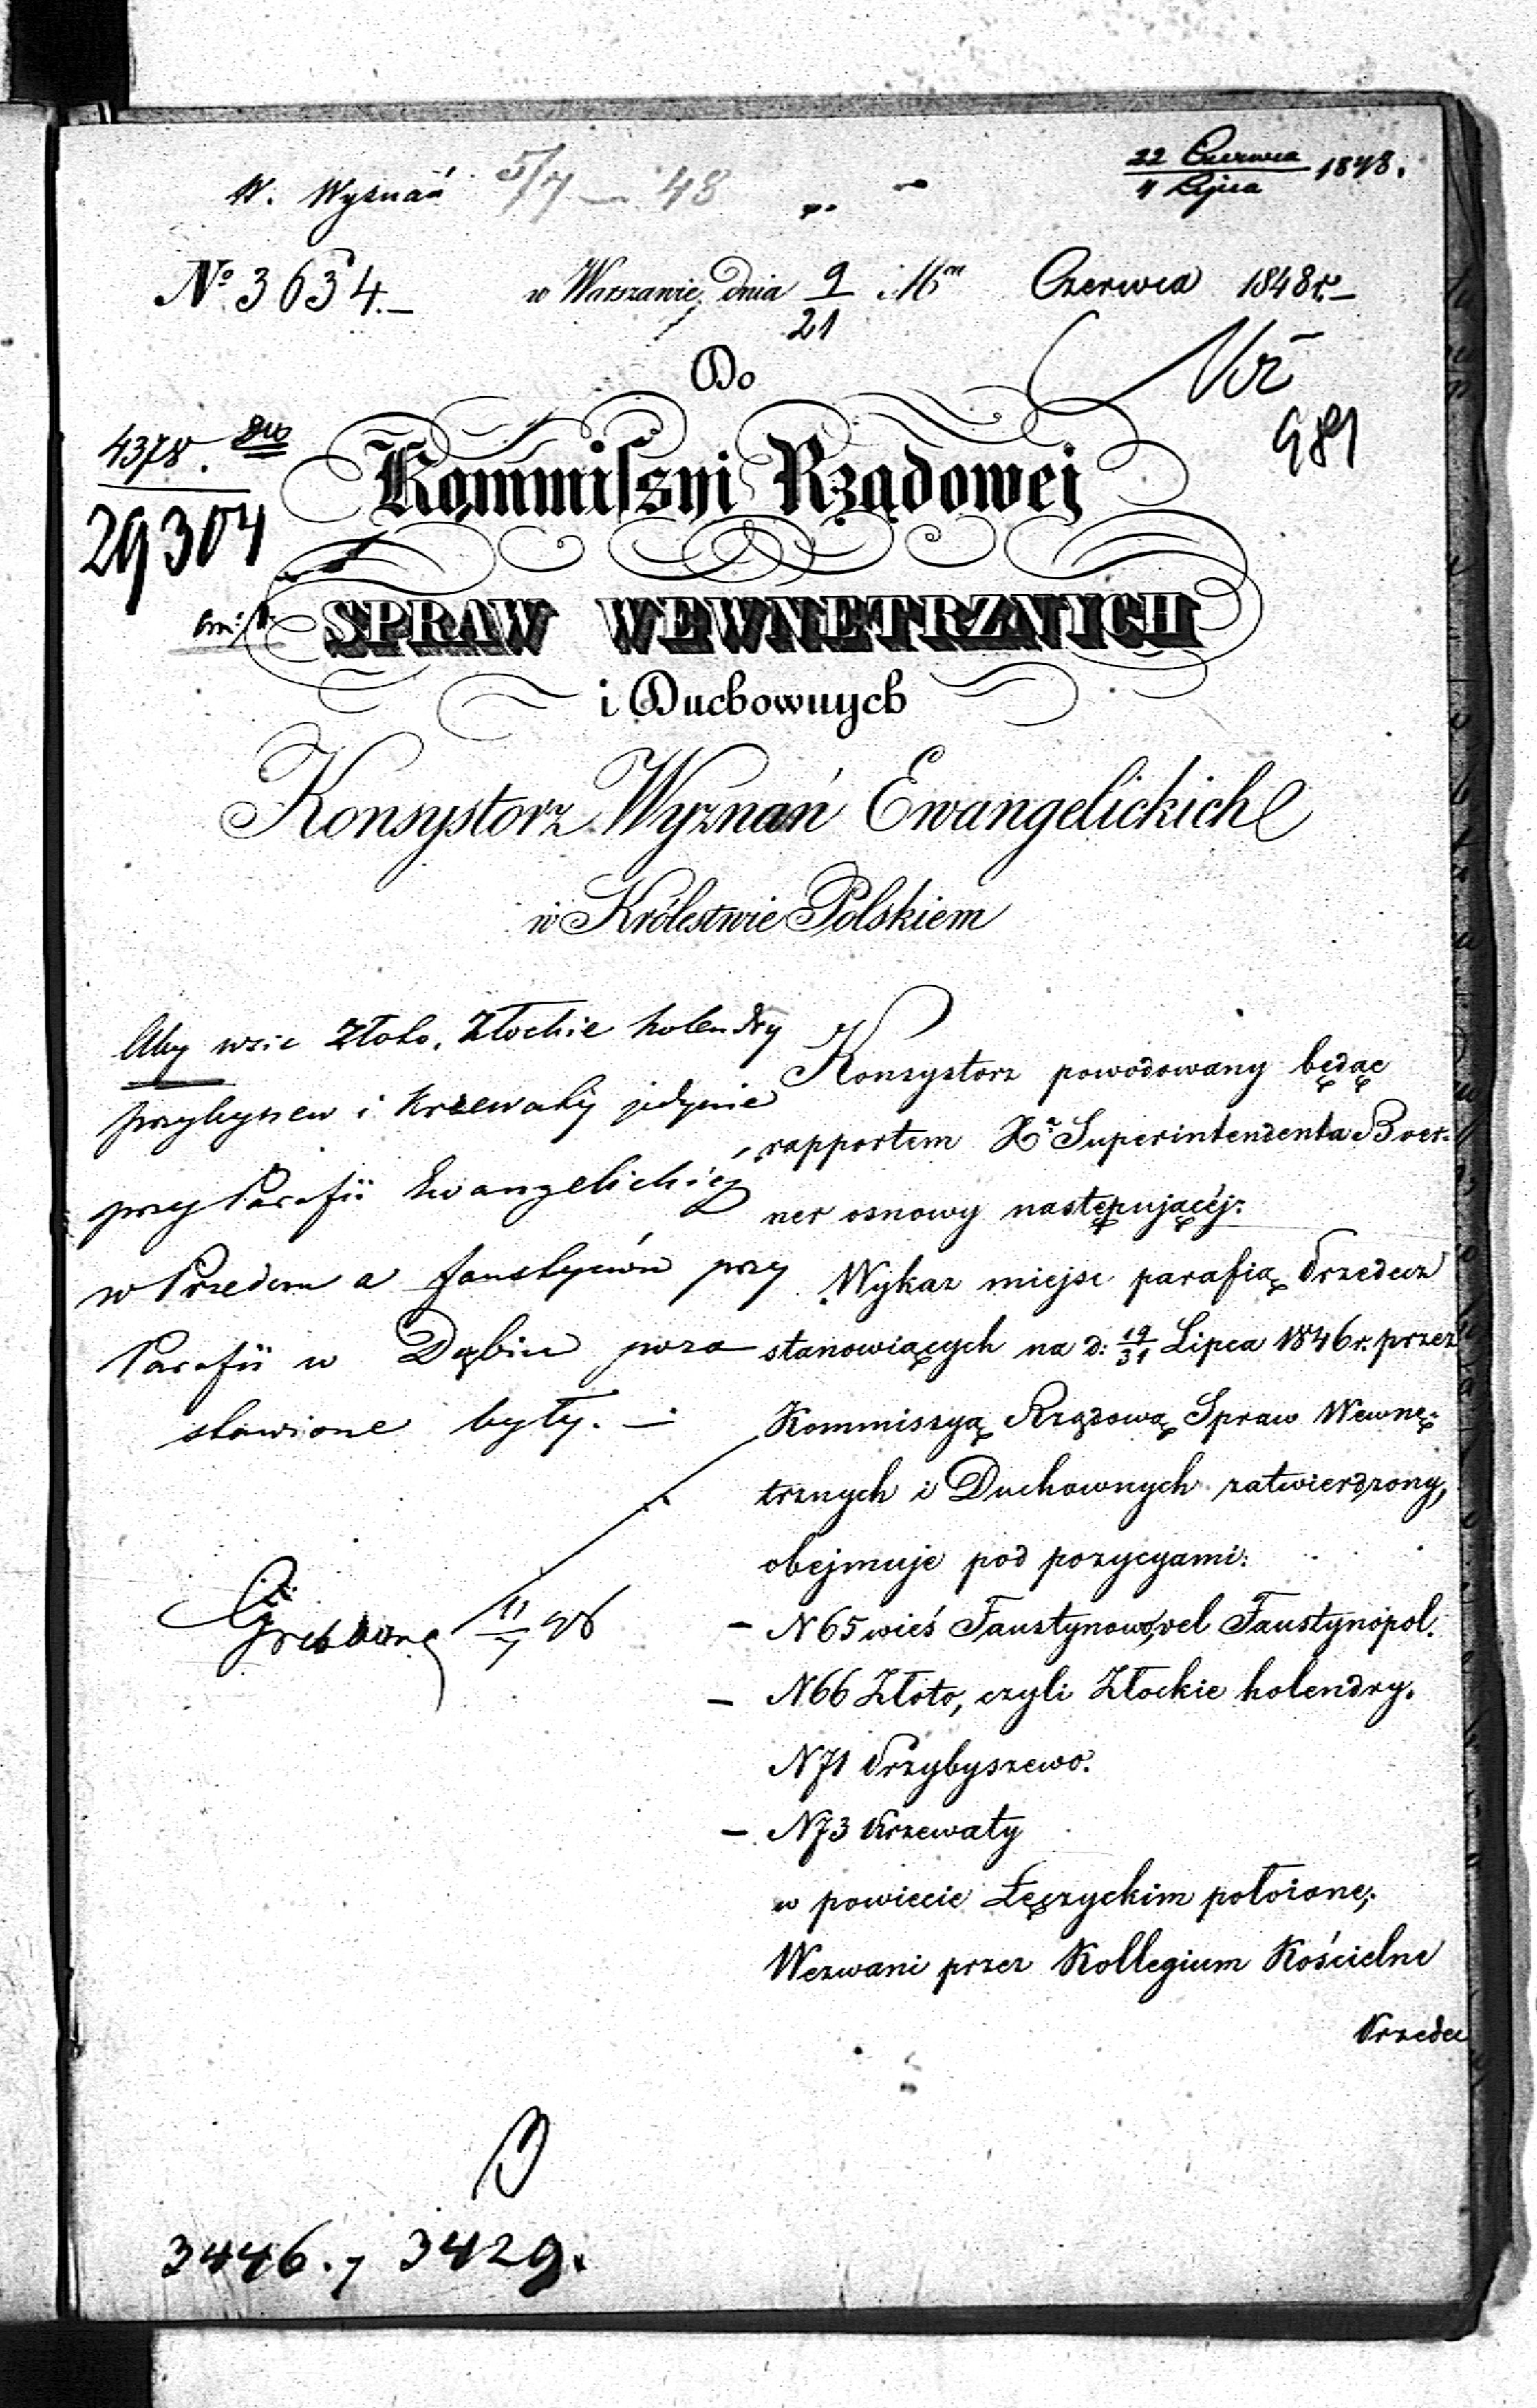 W. Wyznań 5/7 — 48
22 Czerwca / 4 Lipca 1848.
No 3634.—
w Warszawie, dnia 9/21 Czerwca 1848 r.—
Do
981
4378.
29304
Kommiſsyi Rządowej
SPRAW WEWNETRZNYCH
i Duchownych
Konsystorz Wyznań Ewangelickich
w Królestwie Polskiem
Aby wsie Złoto, Złockie holendry
przybyszew i Krzewaty jedynie
przy Parafii Ewangelickiéj
w Przedczu a Faustynów przy
Parafii w Dąbiu pozo
stawione były. —
11/7 48
Konsystorz powodowany będąc
rapportem Xa Superintendenta Boer-
ner osnowy następującéj:
Wykaz miejsc parafią Przedecz
stanowiących na d: 19/31 Lipca 1846 r. przez
Kommissyą Rządową Spraw Wewnę-
trznych i Duchownych zatwierdzony,
obejmuje pod pozycyami:
— N 65 wieś Faustynowo, vel Faustynopol.
— N 66 Złoto, czyli Złockie holendry.
N 71 Przybyszewo.
— N 73 Krzewaty
w powiecie Łęczyckim położone,
Wezwani przez Kollegium Kościelne
Przedec
3446., 3429.